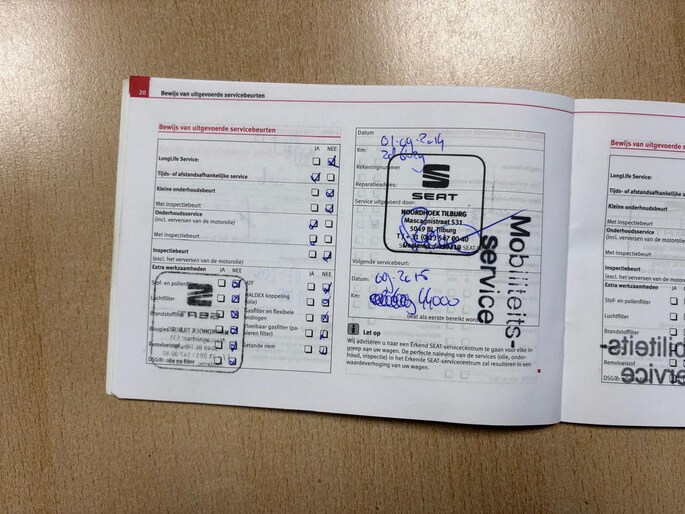 20
Bewijs van uitgevoerde servicebeurten
Bewijs van uitgevoerde servicebeurten
JA NEE
LongLife Service:
Tijds- of afstandsafhankelijke service
Kleine onderhoudsbeurt
Met inspectiebeurt
Onderhoudsservice
(incl. verversen van de motorolie)
Met inspectiebeurt
Inspectiebeurt
(excl. het verversen van de motorolie)
Extra werkzaamheden JA NEE JA NEE
Stof- en pollenfilter
Luchtfilter
HALDEX koppeling
Brandstoffilter
Gasfilter en flexibele
leidingen
Bougies
Vloeibaar gasfilter
Remvloeistof
Getande riem
DSG®: olie en filter
Datum
01-09-2014
Km:
Rekeningnummer
Reparatieadres:
SEAT
Service uitgevoerd door:
NOORDHOEK TILBURG
Mascagnistraat 531
5049 BL Tilburg
Mobiliteits-
service
Volgende servicebeurt:
Datum:
09-2015
Km:
44000
(wat als eerste bereikt wordt)
Let op
Wij adviseren u naar een Erkend SEAT-servicecentrum te gaan voor elke in-
greep aan uw wagen. De perfecte naleving van de services (olie, onder-
houd, inspectie) in het Erkende SEAT-servicecentrum zal resulteren in een
waardeverhoging van uw wagen.
Bewijs van uitgevoerde
Bewijs van uitgevoerde
LongLife Service:
Tijds- of afstandsafhankelijk
Kleine onderhoudsbeurt
Met inspectiebeurt
Onderhoudsservice
(incl. verversen van de motorolie)
Met inspectiebeurt
Inspectiebeurt
(excl. het verversen van de
Extra werkzaamheden
Stof- en pollenfilter
Luchtfilter
Brandstoffilter
Remvloeistof